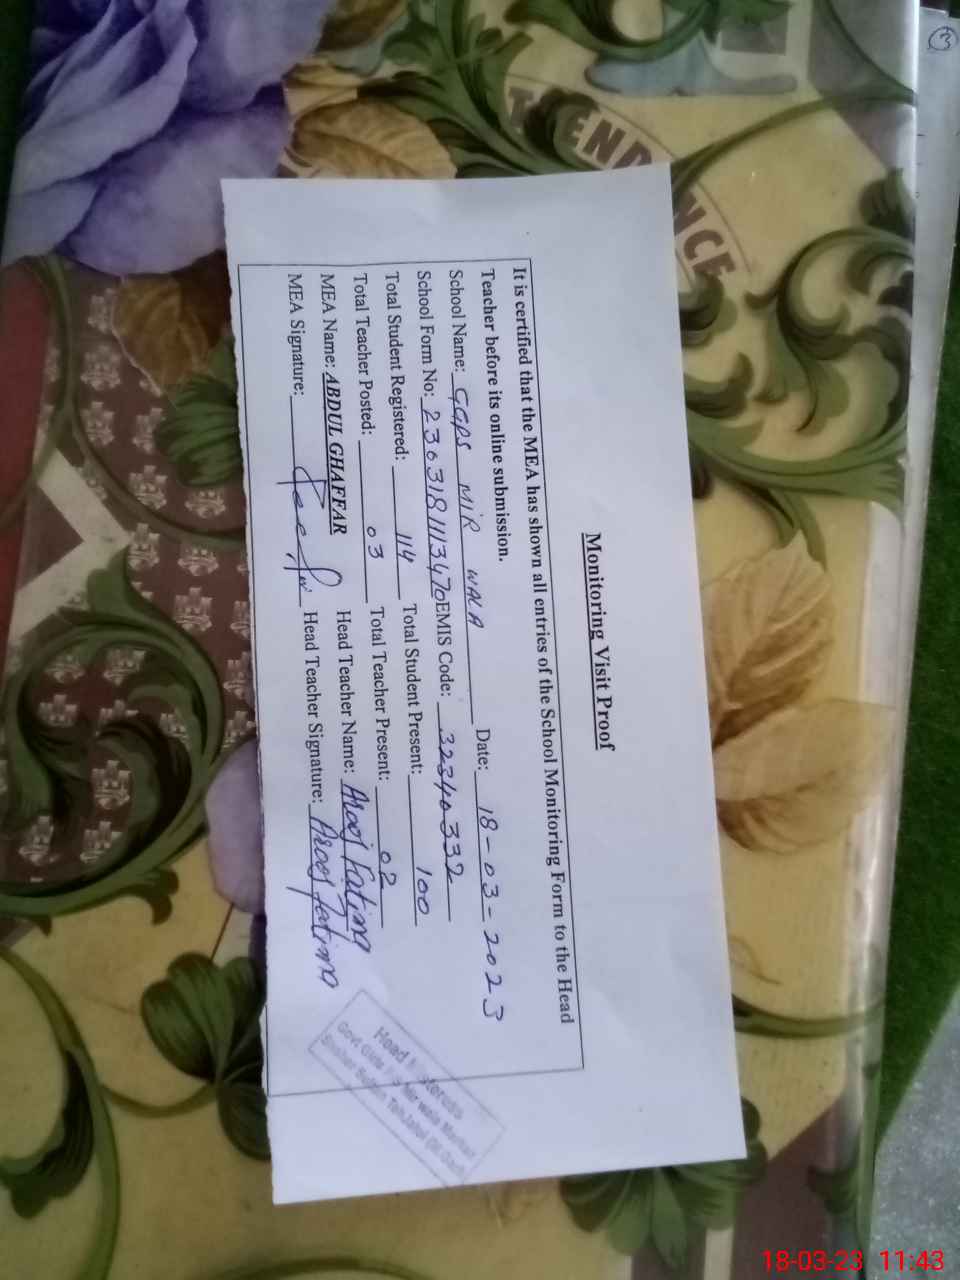 Monitoring Visit Proof
It is certified that the MEA has shown all entries of the School Monitoring Form to the Head
Teacher before its online submission.
School Name: GGPS MIR WALA Date: 18-03-2023
School Form No: 2303181113470 EMIS Code: 32340332
Total Student Registered: 114 Total Student Present: 100
Total Teacher Posted: 03 Total Teacher Present: 02
MEA Name: ABDUL GHAFFAR Head Teacher Name: Arooj Fatima
MEA Signature: Head Teacher Signature: Arooj Fatima
Head
Govt Girls Mir wala
3
18-03-23 11:43